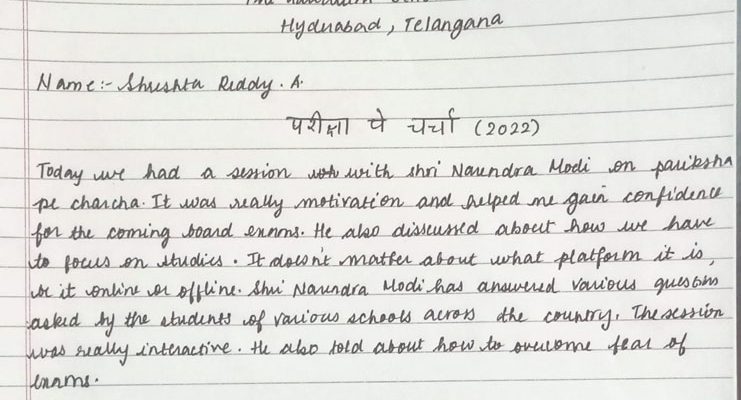 Hyderabad, Telangana
Name:- Shreshta Reddy. A.
परीक्षा पे चर्चा (2022)
Today we had a session with shri Narendra Modi on pariksha
pe charcha. It was really motivation and helped me gain confidence
for the coming board exams. He also disscussed about how we have
to focus on studies. It doesn't matter about what platform it is,
be it online or offline. Shri Narendra Modi has answered various questions
asked by the students of various schools across the country. The session
was really interactive. He also told about how to overcome fear of
exams.